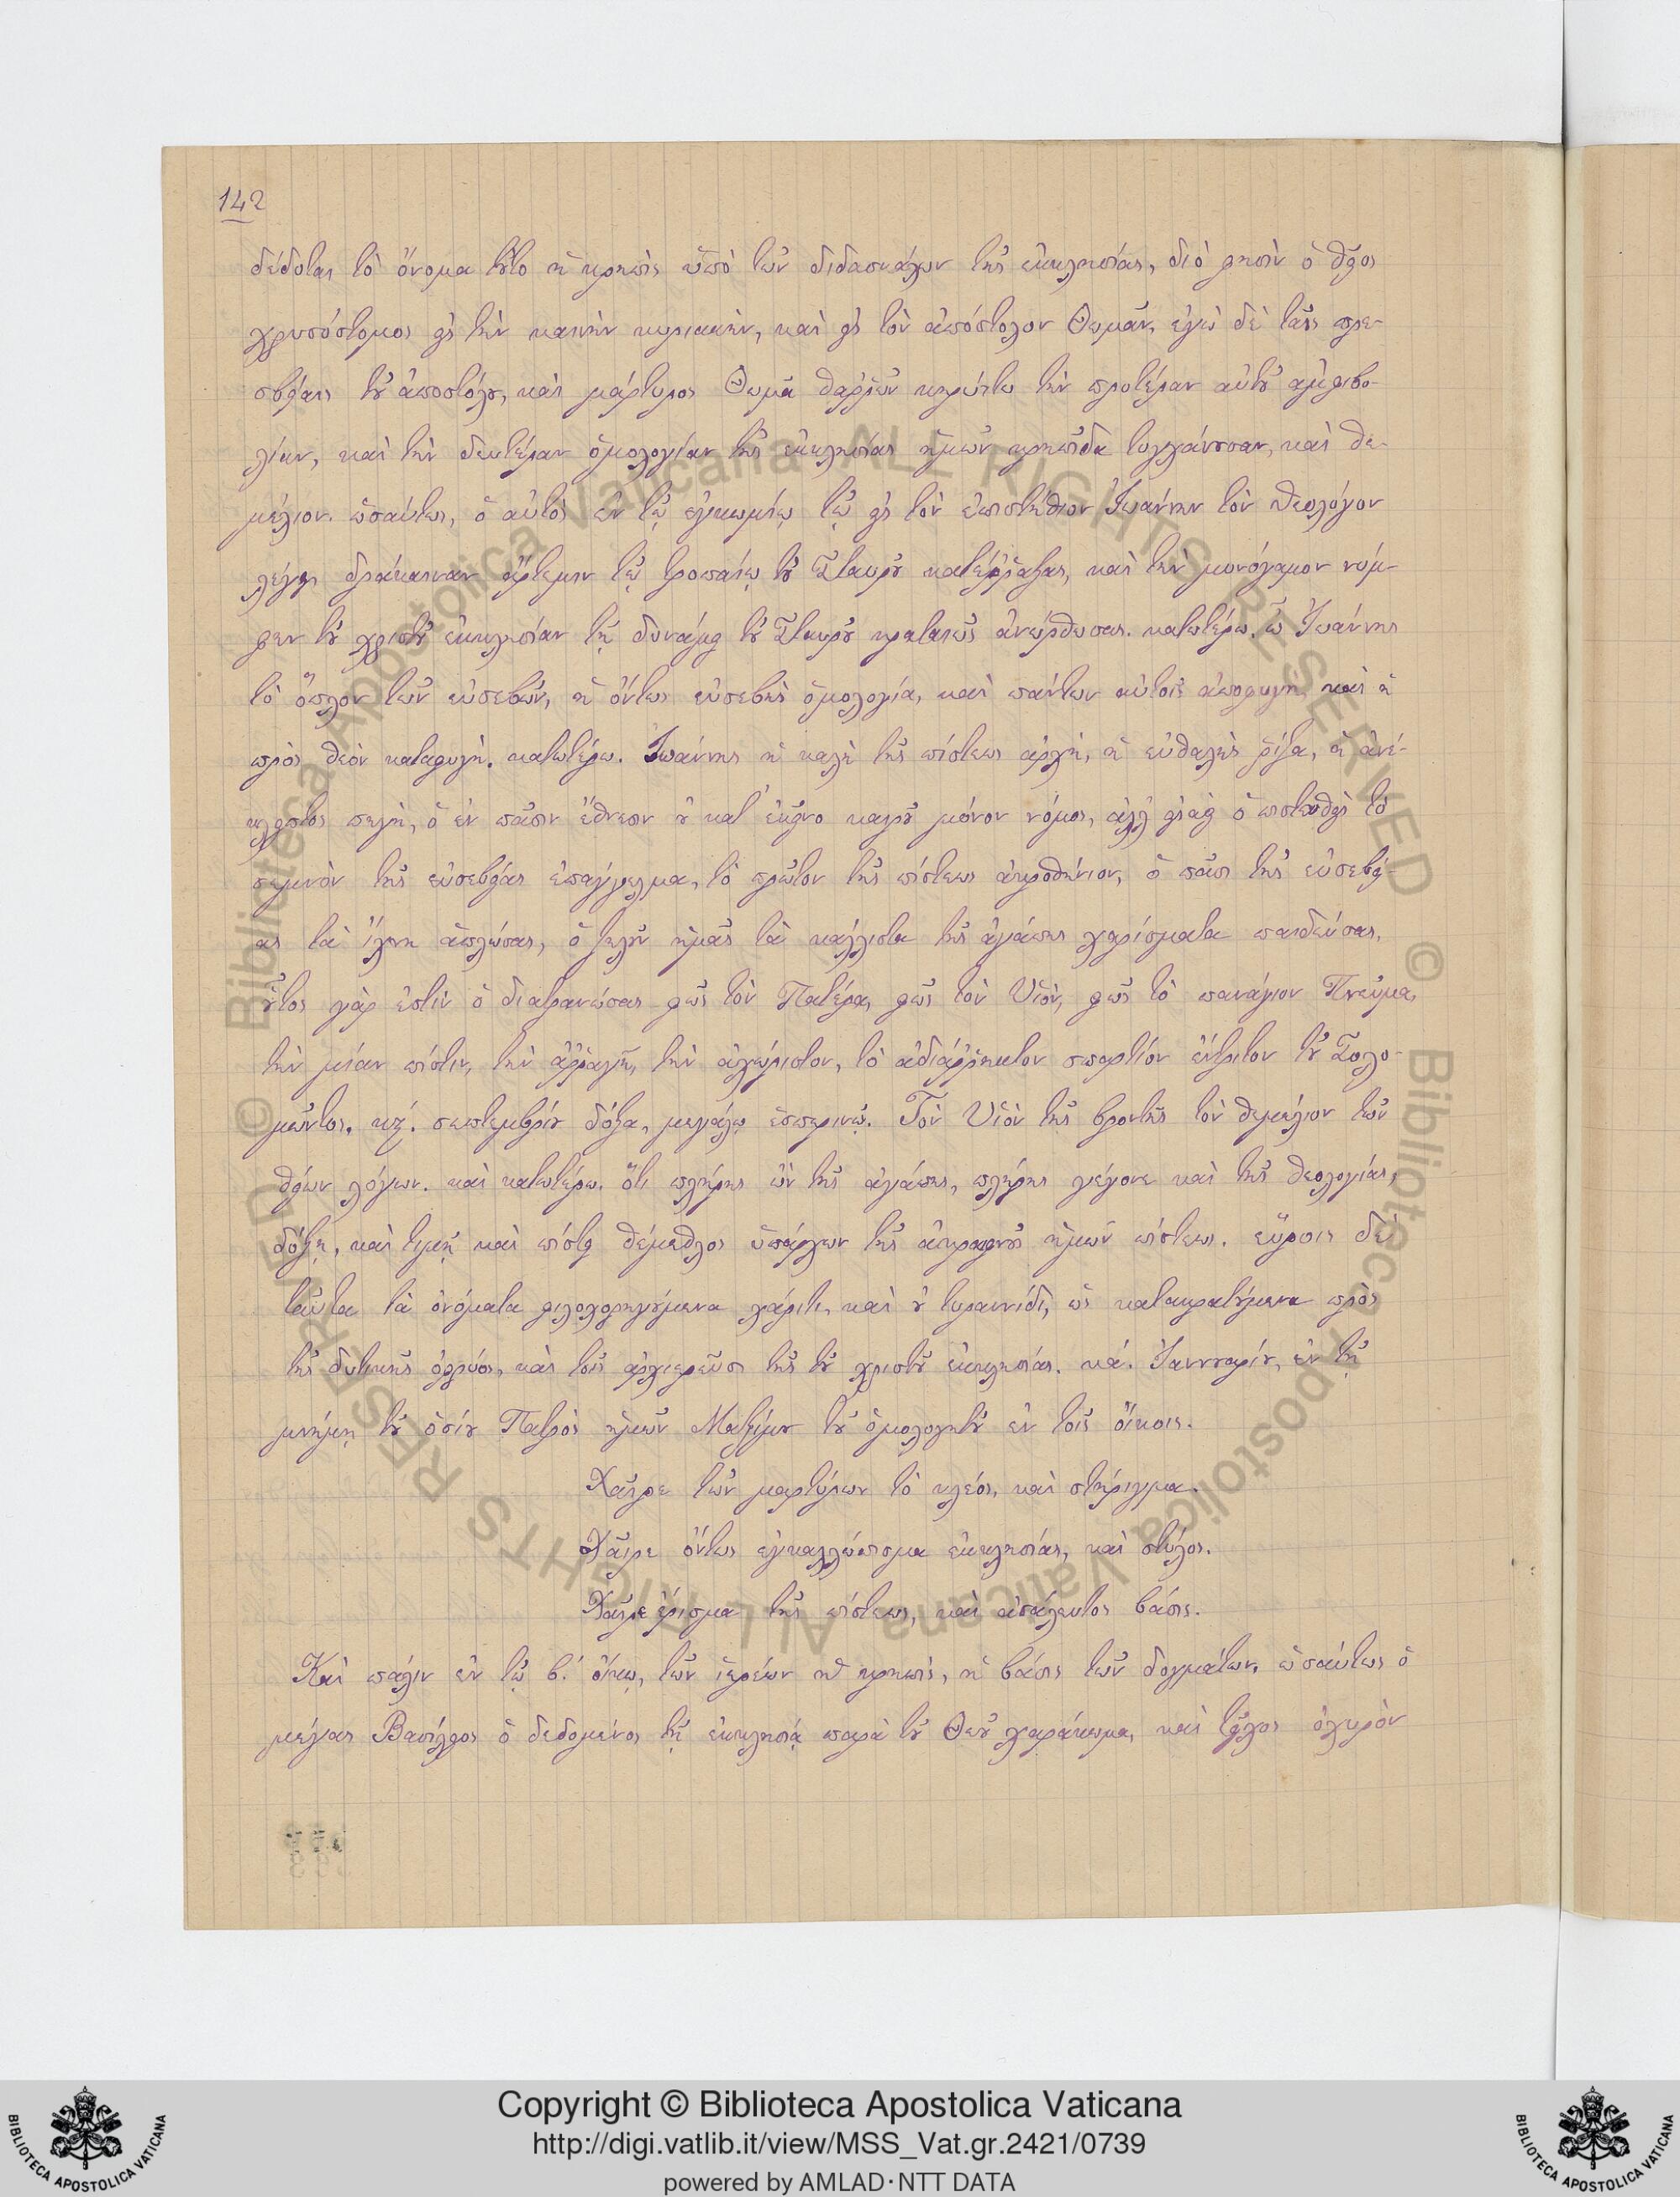 142
δέδοται τὸ ὄνομα τοῦτο ἡ κρηπὶς ὑπὸ τῶν διδασκάλων τῆς ἐκκλησίας, διὸ φησὶν ὁ θεῖος
χρυσόστομος εἰς τὴν καινὴν κυριακὴν, καὶ εἰς τὸν ἀπόστολον Θωμᾶν, ἐγὼ δὲ ταῖς πρε-
σβείαις τοῦ ἀποστόλου, καὶ μάρτυρος Θωμᾶ θαῤῥῶν κηρύττω τὴν προτέραν αὐτοῦ ἀμφιβο-
λίαν, καὶ τὴν δευτέραν ὁμολογίαν τῆς ἐκκλησίας ἡμῶν κρηπῖδα τυγχάνουσαν, καὶ θε-
μέλιον. ὡσαύτως, ὁ αὐτὸς ἐν τῷ ἐγκωμίῳ τῷ εἰς τὸν ἐπιστήθιον Ἰωάννην τὸν Θεολόγον
λέγει δράκαιναν ἄρτεμιν τῷ τροπαίῳ τοῦ Σταυροῦ κατέῤῥαξας, καὶ τὴν μονόγαμον νύμ-
φην τοῦ χριστοῦ ἐκκλησίαν τῇ δυνάμει τοῦ Σταυροῦ κραταιῶς ἀνώρθωσας. κατωτέρω. ὦ Ἰωάννης
τὸ ὅπλον τῶν εὐσεβῶν, ἡ ὄντως εὐσεβὴς ὁμολογία, καὶ πάντων αὐτοῖς ἀποφυγὴ, καὶ ἡ
πρὸς θεὸν καταφυγὴ. κατωτέρω. Ἰωάννης ἡ καλὴ τῆς πίστεως ἀρχὴ, ἡ εὐθαλὴς ῥίζα, ἡ ἀνέ-
κλειπτος πηγὴ, ὁ ἐν πᾶσιν ἔθνεσιν οὐ κατ' ἐκεῖνο καιροῦ μόνον νόμος, ἀλλ' εἰσαεὶ ὁ πιστευθεὶς τὸ
σεμνὸν τῆς εὐσεβείας ἐπάγγελμα, τὸ πρῶτον τῆς πίστεως ἀκροθίνιον, ὁ πᾶσι τῆς εὐσεβεί-
ας τὰ ἴχνη ἁπλώσας, ὁ ζητεῖν ἡμᾶς τὰ κάλλιστα τῆς ἀγάπης χαρίσματα παιδεύσας.
οὗτος γάρ ἐστιν ὁ διατρανώσας φῶς τὸν Πατέρα, φῶς τὸν Υἱὸν, φῶς τὸ πανάγιον Πνεῦμα,
τὴν μίαν πίστιν, τὴν ἀῤῥαγῆ, τὴν ἀχώριστον, τὸ ἀδιάῤῥηκτον σπαρτίον ἔντριτον τοῦ Σολο-
μῶντος. κϛ΄. σεπτεμβρίου δόξα, μεγάλῳ ἑσπερινῷ. Τὸν Υἱὸν τῆς βροντῆς τὸν θεμέλιον τῶν
θείων λόγων. καὶ κατωτέρω. ὅτι πλήρης ὢν τῆς ἀγάπης, πλήρης γέγονε καὶ τῆς θεολογίας,
δόξῃ, καὶ τιμῇ καὶ πίστει θέμεθλος ὑπάρχων τῆς ἀκραιφνοῦς ἡμῶν πίστεως. εὕροις δὲ
ταῦτα τὰ ὀνόματα φιλοχορηγούμενα χάριτι, καὶ οὐ τυραννίδι, ὡς κατακρατούμενα πρὸς
τῆς δυτικῆς ὀφρύος, καὶ τοῖς ἀρχιερεῦσι τῆς τοῦ χριστοῦ ἐκκλησίας. κα΄. Ἰαννουαρίου, ἐν τῇ
μνήμῃ τοῦ ὁσίου Πατρὸς ἡμῶν Μαξίμου τοῦ ὁμολογητοῦ ἐν τοῖς οἴκοις.
Χαῖρε τῶν μαρτύρων τὸ κλέος, καὶ στήριγμα.
Χαῖρε ὄντως ἐγκαλλώπισμα ἐκκλησίας, καὶ στύλος.
Χαῖρε ἔρεισμα τῆς πίστεως, καὶ ἀσάλευτος βάσις.
Καὶ πάλιν ἐν τῷ β΄. οἴκῳ, τῶν ἱερέων ἡ κρηπὶς, ἡ βάσις τῶν δογμάτων. ὡσαύτως ὁ
μέγας Βασίλειος ὁ δεδομένος τῇ ἐκκλησίᾳ παρὰ τοῦ Θεοῦ χαράκωμα, καὶ τεῖχος ὀχυρὸν
© Biblioteca Apostolica Vaticana ALL RIGHTS RESERVED © Biblioteca Apostolica Vaticana ALL RIGHTS RESERVED
Copyright © Biblioteca Apostolica Vaticana
http://digi.vatlib.it/view/MSS_Vat.gr.2421/0739
powered by AMLAD·NTT DATA
BIBLIOTECA APOSTOLICA VATICANA
BIBLIOTECA APOSTOLICA VATICANA